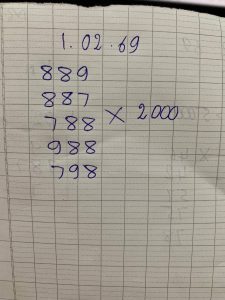 1.02.69
889
887
788 X 2000
988
798